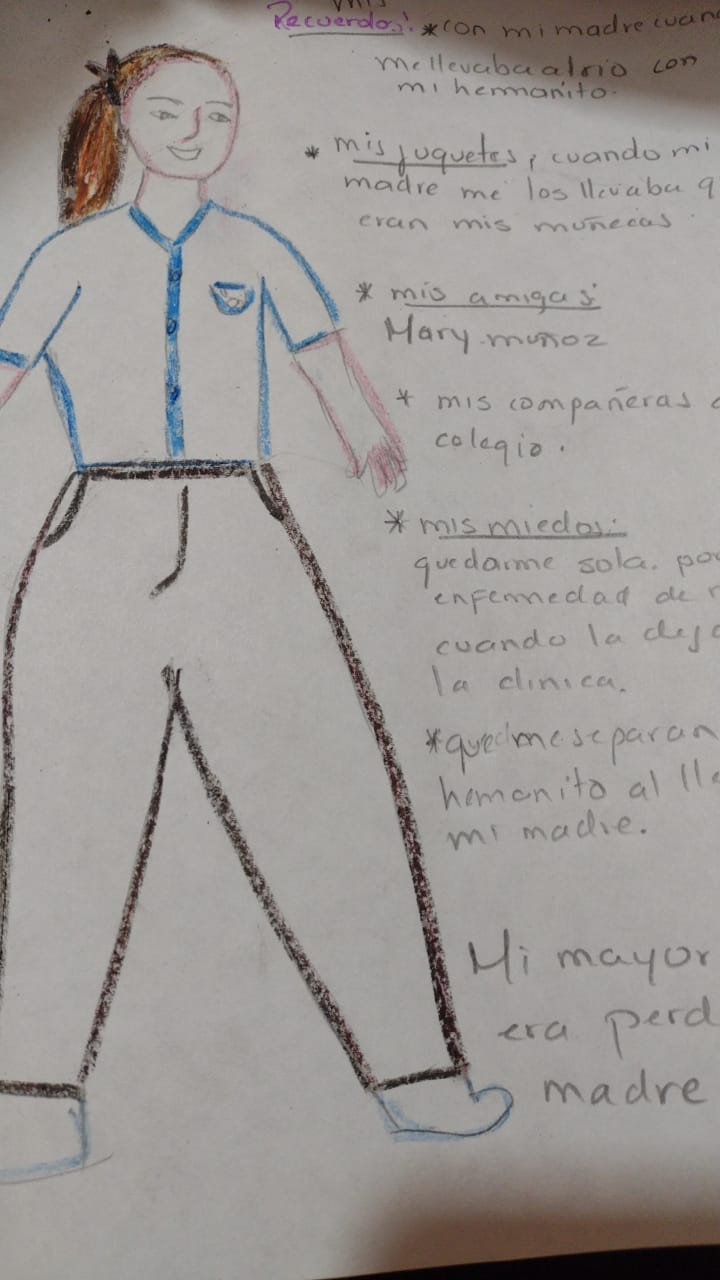 mis
Recuerdos: *con mi madre cuan
me llevaba al rio con
mi hermanito.
* mis juguetes, cuando mi
madre me los llevaba q
eran mis muñecas
* mis amigas:
Mary muñoz
* mis compañeras
colegio.
* mis miedos:
quedarme sola. por
enfermedad de
cuando la dej
la clinica.
*que me separan
hemanito al lle
mi madre.
Mi mayor
era perd
madre